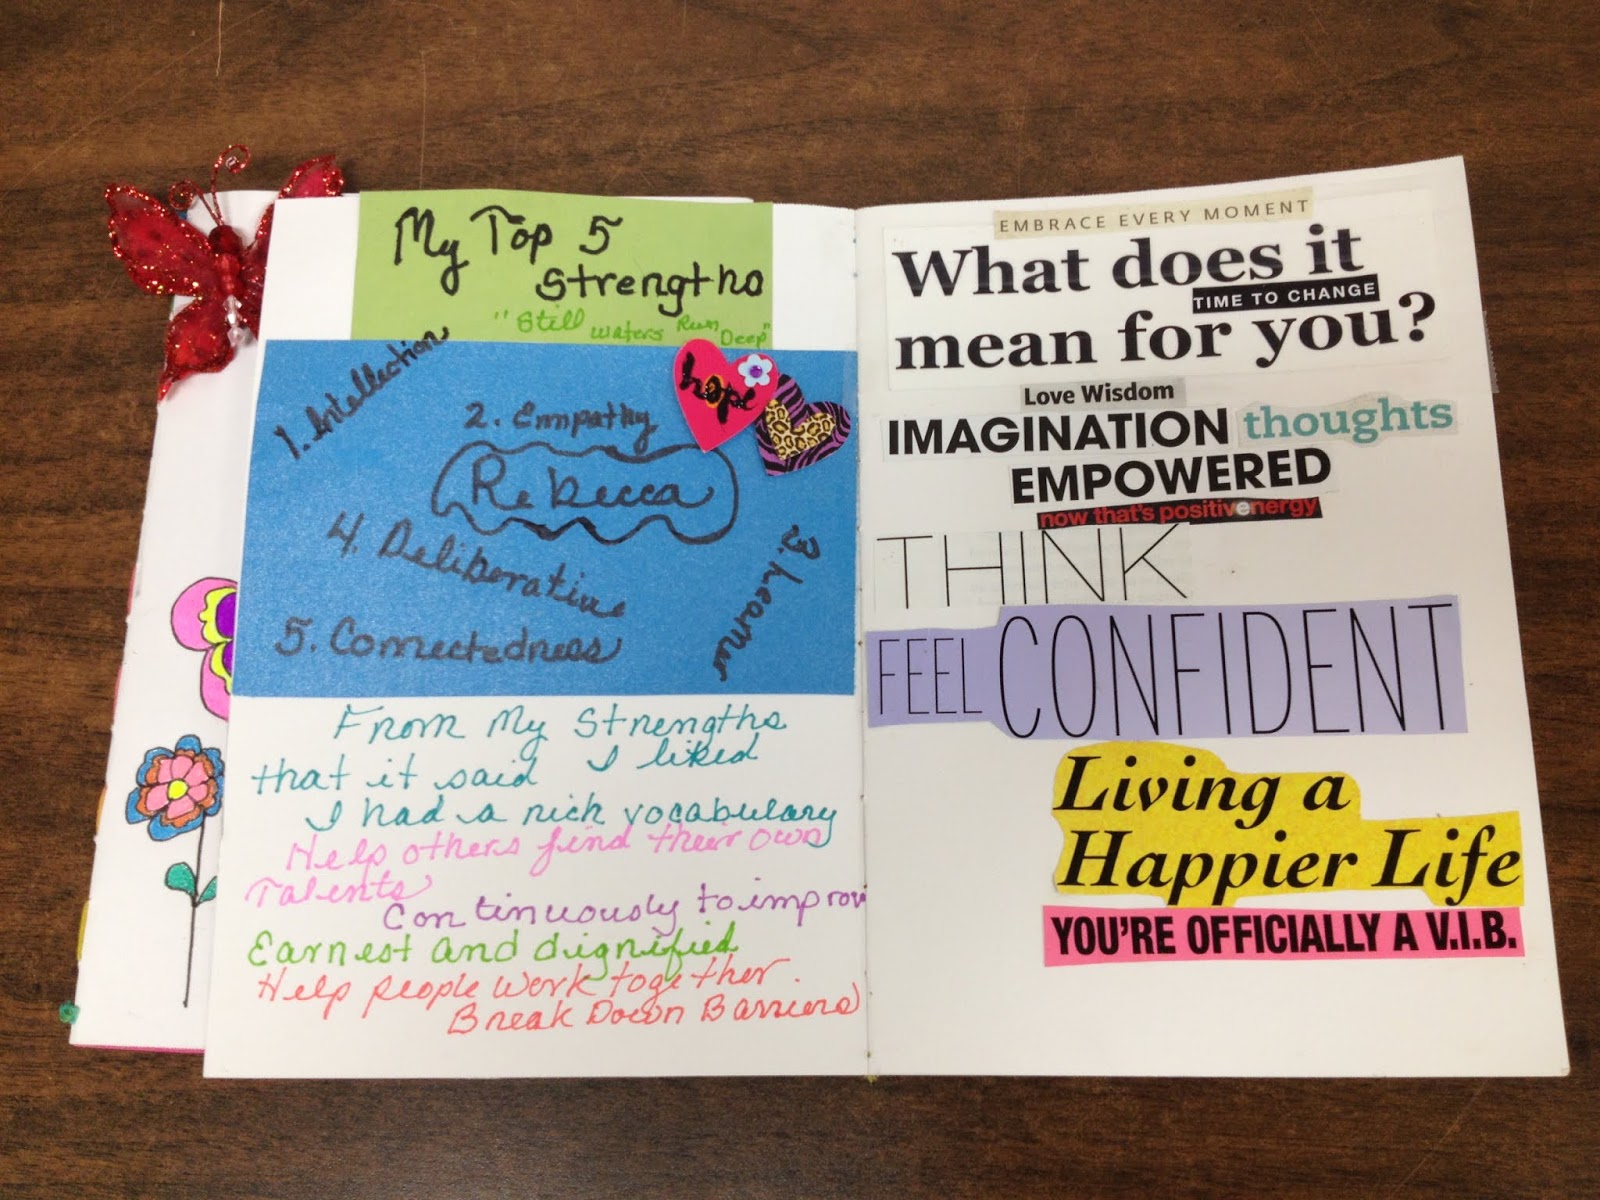 My Top 5
Strengths
"Still waters Run Deep"
hope
1. Intellection
2. Empathy
Rebecca
3. Learner
4. Deliberative
5. Connectedness
From My Strengths
that it said I liked
I had a rich vocabulary
Help others find their own
Talents
Continuously to improv
Earnest and dignified
Help people work together.
Break Down Barriers
EMBRACE EVERY MOMENT
What does it
TIME TO CHANGE
mean for you?
Love Wisdom
IMAGINATION thoughts
EMPOWERED
now that's positivenergy
THINK
FEEL CONFIDENT
Living a
Happier Life
YOU'RE OFFICIALLY A V.I.B.